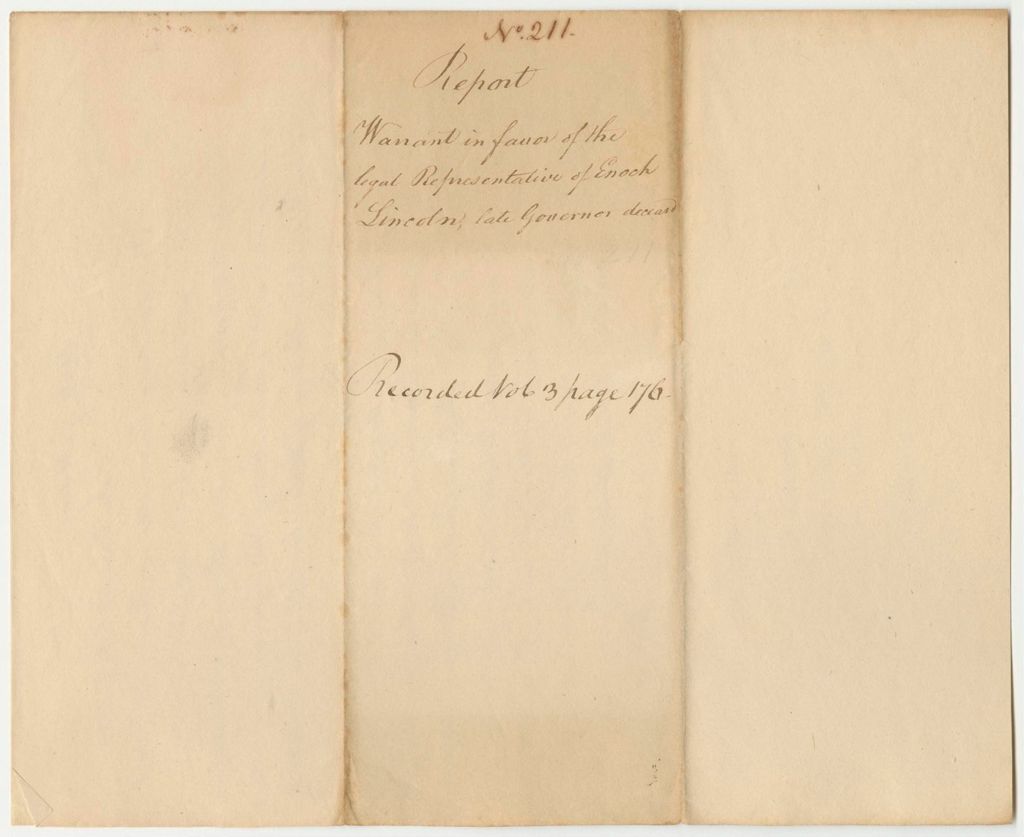 No. 211.
Report
Warrant in favor of the
legal Representative of Enoch
Lincoln, late Governor deceasd
211
Recorded Vol 3 page 176